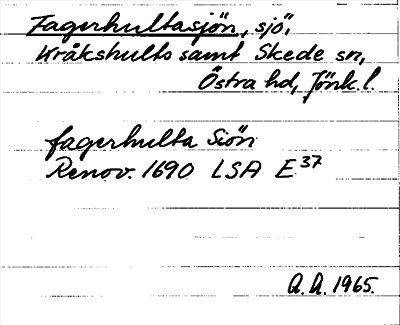 Fagerhultasjön, sjö,
Kråkshults samt Skede sn,
Östra hd, Jönk. l.
fagerhulta Siön
Renov. 1690 LSA E³⁷
A. A. 1965.